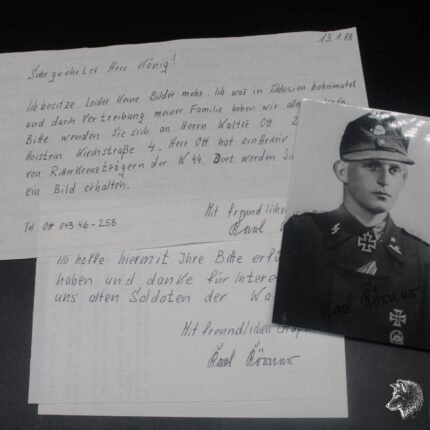 13.1.88
Sehr geehrter Herr König!
Ich besitze leider keine Bilder mehr. Ich war in Schlesien beheimatet
und durch Vertreibung meiner Familie haben wir
Bitte wenden Sie sich an Herrn Walter Ott
Holstein Kirchstraße 4. Herr Ott hat ein Archiv
von Ritterkreuzträgern der W 44. Dort werden
ein Bild erhalten.
Tel Ott 04346-258
Mit freundlichen
Karl
Ich hoffe hiermit Ihre Bitte
haben und danke für
uns alten Soldaten der
Mit freundlichen
Karl
Karl